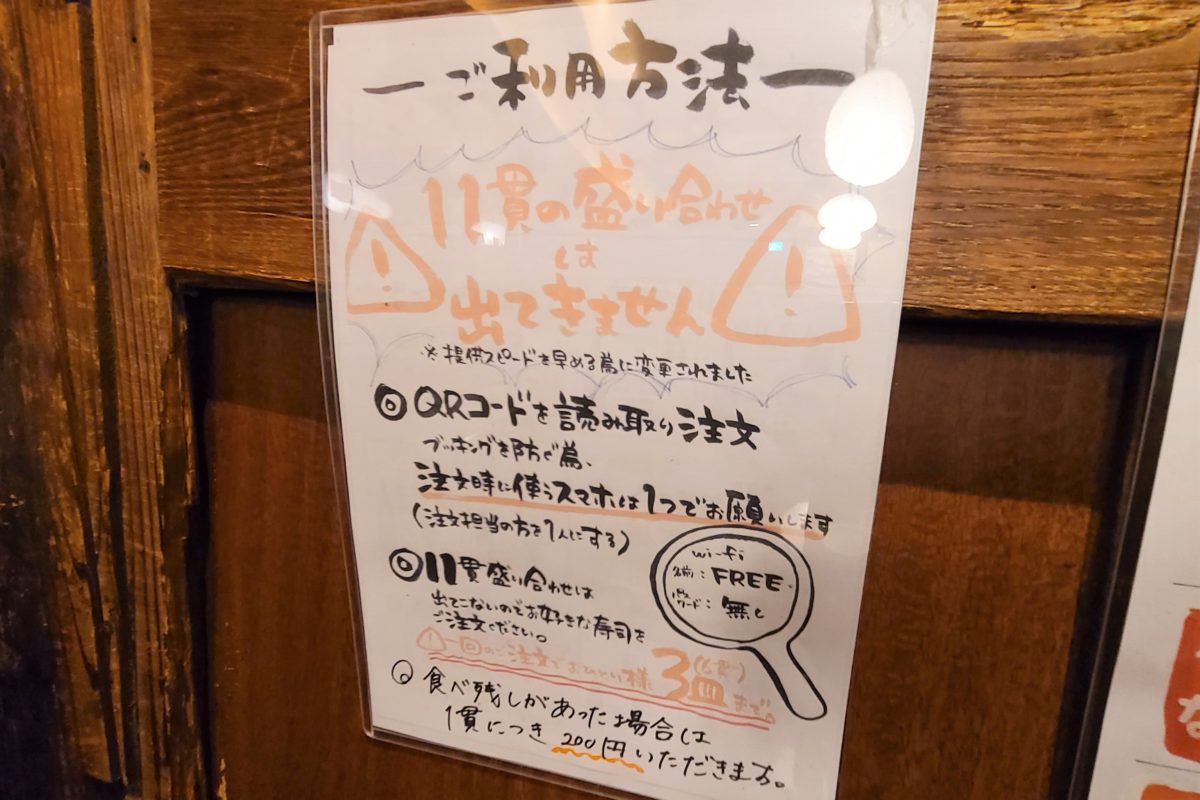 ー ご利用方法 ー
11貫の盛り合わせ
は
出てきません
※提供スピードを早める為に変更されました
◎ QRコードを読み取り注文
ブッキングを防ぐ為、
注文時に使うスマホは1つでお願いします
(注文担当の方を1人にする)
wi-fi
名前:FREE
パスワード:無し
◎ 11貫盛り合わせは
出てこないのでお好きな寿司を
ご注文ください。
一回のご注文でおひとり様 3皿(6貫)まで。
食べ残しがあった場合は
1貫につき 200円いただきます。